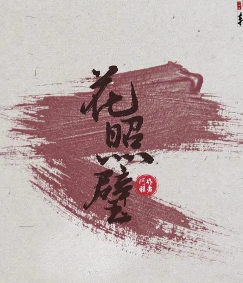 花照壁